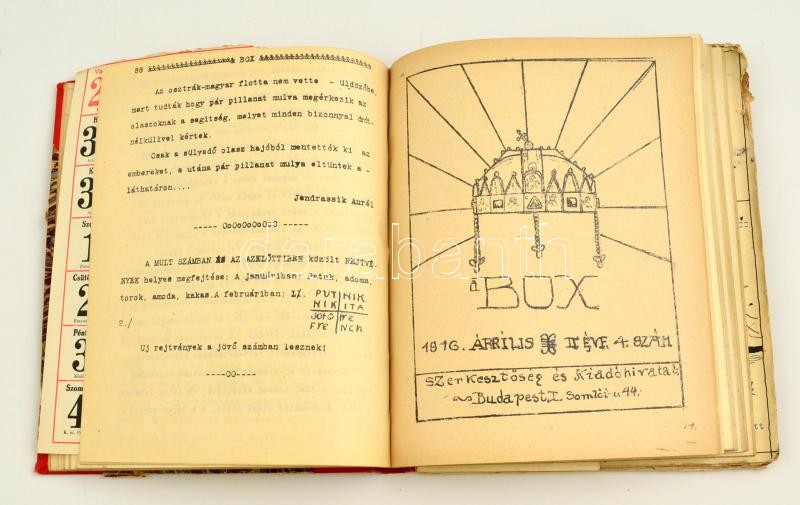 88 &&&&&&&&&&&&&&&&& BOX &&&&&&&&&&&&&&&&&
Az osztrák-magyar flotta nem vette - üldözőbe,
mert tudták hogy pár pillanat mulva megérkezik az
olaszoknak a segitség, melyet minden bizonnyal drót-
nélkülivel kértek.
Csak a sülyedő olasz hajóból mentették ki az
embereket, s utána pár pillanat mulva eltüntek a -
láthatáron....
Jendrassik Aurél
----- OoOoOoOoOoO -----
A MULT SZÁMBAN ÉS AZ AZELŐTTIBEN közölt REJTVÉ-
NYEK helyes megfejtése: A januáriban: Patak, adoma,
torok, amoda, kakas. A februáriban: 1/. PUT NIK
NIK ITA
2./ JOFO fre
Fre Nch
Uj rejtvények a jövő számban lesznek!
----OO----
BUX
1916. ÁPRILIS II ÉVF. 4. SZÁM
Szerkesztőség és Kiadóhivatal:
Budapest, I. Somlói-u 44.
darabanth